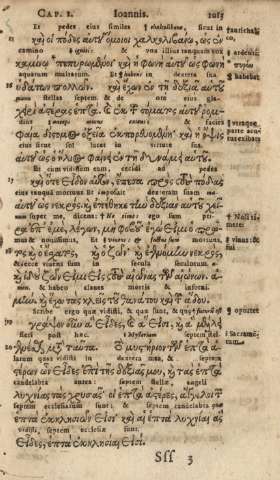 CAP. I. Ioannis.
Et pedes eius similes sicut in
καὶ οἱ πόδες αὐτοῦ ὅμοιοι χαλκολιβάνῳ, ὡς ἐν
camino & vox illius tanquam vox
καμίνῳ πεπυρωμένοι καὶ ἡ φωνὴ αὐτοῦ ὡς φωνὴ
aquarum multarum. in dextera sua
ὑδάτων πολλῶν. καὶ ἔχων ἐν τῇ δεξιᾷ αὐτοῦ
stellas septem & de ore eius
ἀστέρας ἑπτά. καὶ ἐκ τοῦ στόματος αὐτοῦ ῥομ-
φαία δίστομος ὀξεῖα ἐκπορευομένη καὶ ἡ ὄψις
eius sicut sol lucet in virtute sua
αὐτοῦ ὡς ὁ ἥλιος φαίνει ἐν τῇ δυνάμει αὐτοῦ.
Et cum vidissem eum, cecidi ad pedes
καὶ ὅτε εἶδον αὐτόν, ἔπεσα πρὸς τοὺς πόδας
eius tanquam mortuus. Et imposuit dexteram suam
αὐτοῦ ὡς νεκρός, καὶ ἐπέθηκε τὴν δεξιὰν αὐτοῦ χεῖ-
super me, dicens: Ne timeas ego sum pri-
ἐπ' ἐμέ, λέγων, μὴ φοβοῦ ἐγώ εἰμι ὁ πρῶ-
mus & nouissimus, mortuus,
τος καὶ ὁ ἔσχατος, καὶ ὁ ζῶν καὶ ἐγενόμην νεκρός,
& ecce viuens sum in secula seculorum,
καὶ ἰδοὺ ζῶν εἰμι εἰς τοὺς αἰῶνας τῶν αἰώνων. ἀ-
& habeo claues mortis & inferni.
μήν, καὶ ἔχω τὰς κλεῖς τοῦ θανάτου καὶ τοῦ ᾅδου.
Scribe ergo quæ vidisti, & quæ sunt, &
γράψον οὖν ἃ εἶδες, καὶ ἅ εἰσι, καὶ ἃ μέλλει
fieri post hæc.
γενέσθαι μετὰ ταῦτα. Ὁ μυστήριον τῶν ἑπτὰ ἀ-
larum quas vidisti in dextera mea, & septem
στέρων ὧν εἶδες ἐπὶ τῆς δεξιᾶς μου, καὶ τὰς ἑπτὰ
candelabra aurea: septem stellæ, angeli
λυχνίας τὰς χρυσᾶς. οἱ ἑπτὰ ἀστέρες, ἄγγελοι
septem ecclesiarum sunt: & septem candelabra quæ
ἑπτὰ ἐκκλησιῶν εἰσι καὶ αἱ ἑπτὰ λυχνίαι ἃς
vidisti, septem ecclesiæ sunt.
εἶδες, ἑπτὰ ἐκκλησίαι εἰσί.
Sſſ 3